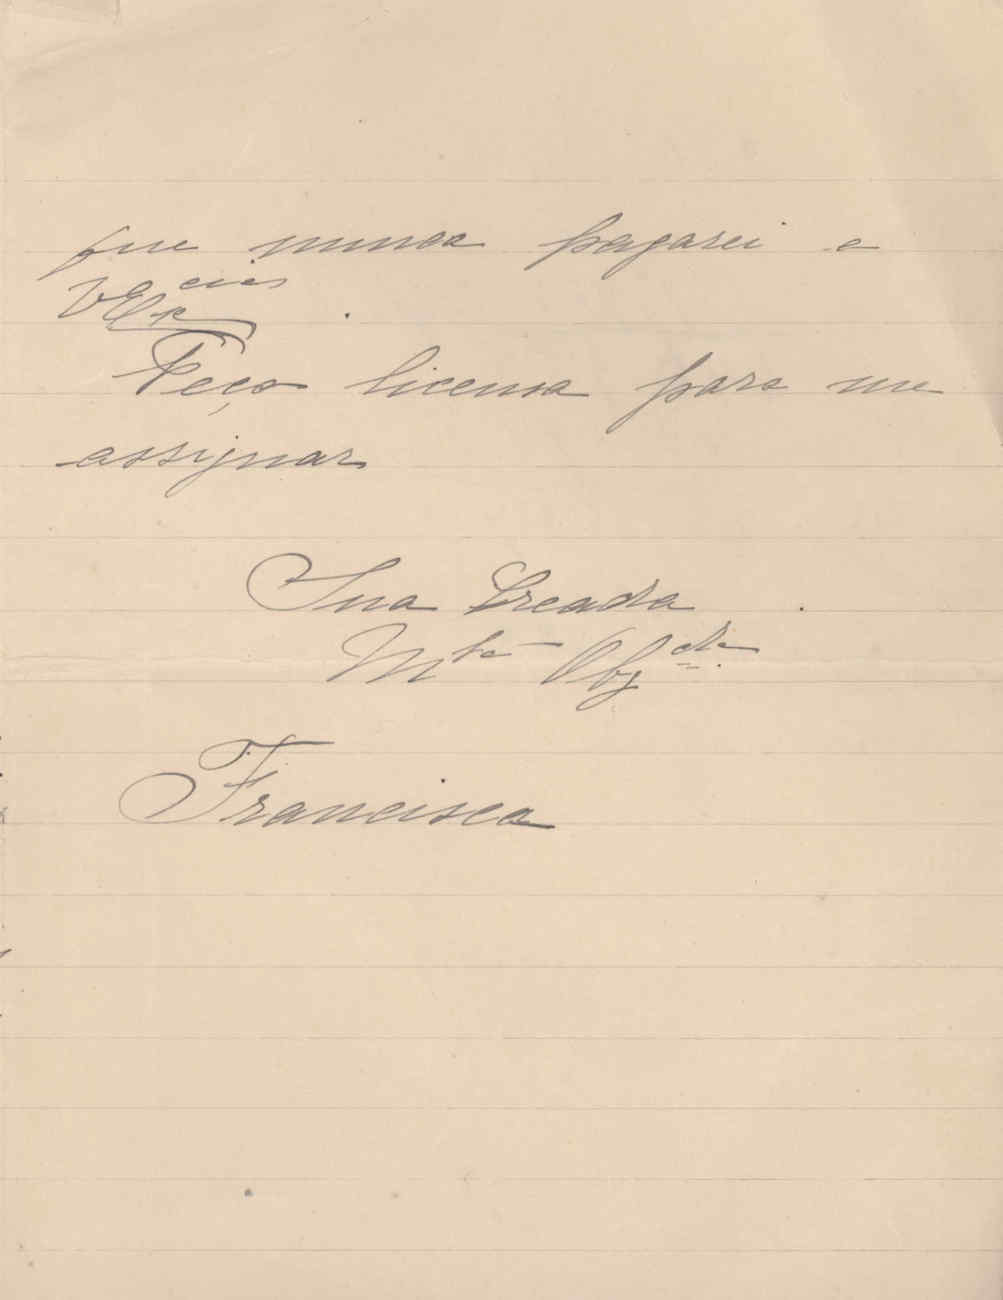 que nunca pagarei a
V Ex cias
Peço licensa para me
assignar
Sua Creada
Mto Obgda
Francisca